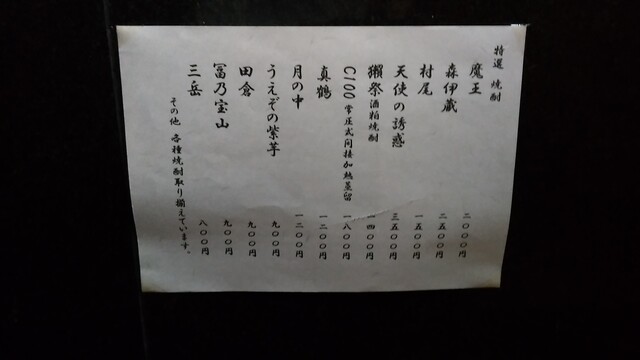 特選 焼酎
魔王 二〇〇〇円
森伊蔵 二五〇〇円
村尾 一五〇〇円
天使の誘惑 三五〇〇円
獺祭 酒粕焼酎 一四〇〇円
C100 常圧式間接加熱蒸留 一八〇〇円
真鶴 一二〇〇円
月の中 一二〇〇円
うえぞの紫芋 九〇〇円
田倉 九〇〇円
冨乃宝山 九〇〇円
三岳 八〇〇円
その他 各種焼酎取り揃えています。